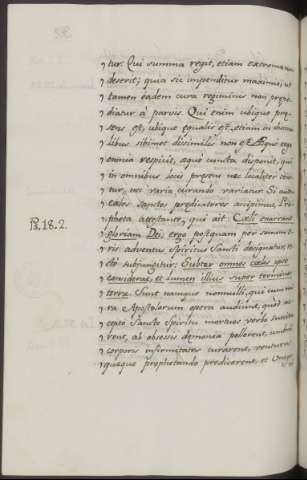 tur. Qui summa regit, etiam extrema non
deserit; quia sic impenditur maximis, ut
tamen eadem cura regiminis non præpe
diatur à parvis. Qui enim ubique præ
sens est, ubique equalis est, etiam in dissimi
libus sibimet dissimilis non est. Æque ergo
omnia respicit, æque cuncta disponit, qui
in omnibus locis præsens nec localiter
tur, nec varia curando variatur. Si autem
cælos sanctos prædicatores accipimus, Pro
pheta attestante, qui ait: Cæli enarrant
Ps. 18. 2.
gloriam Dei, ergo postquam per
ris adventus Spiritus Sancti designatus,
cto subjungitur: Subter omnes cælos ipse
considerat, et lumen illius super terminos
terræ. Sunt namque nonnulli, qui cum mi
ra Apostolorum opera audiunt, quod ac
cepto Sancto Spiritu mortuos verbo suscita
rent, ab obsessis dæmonia pellerent, umbra
corporis infirmitates curarent, ventura
quæque prophetando prædicerent, et